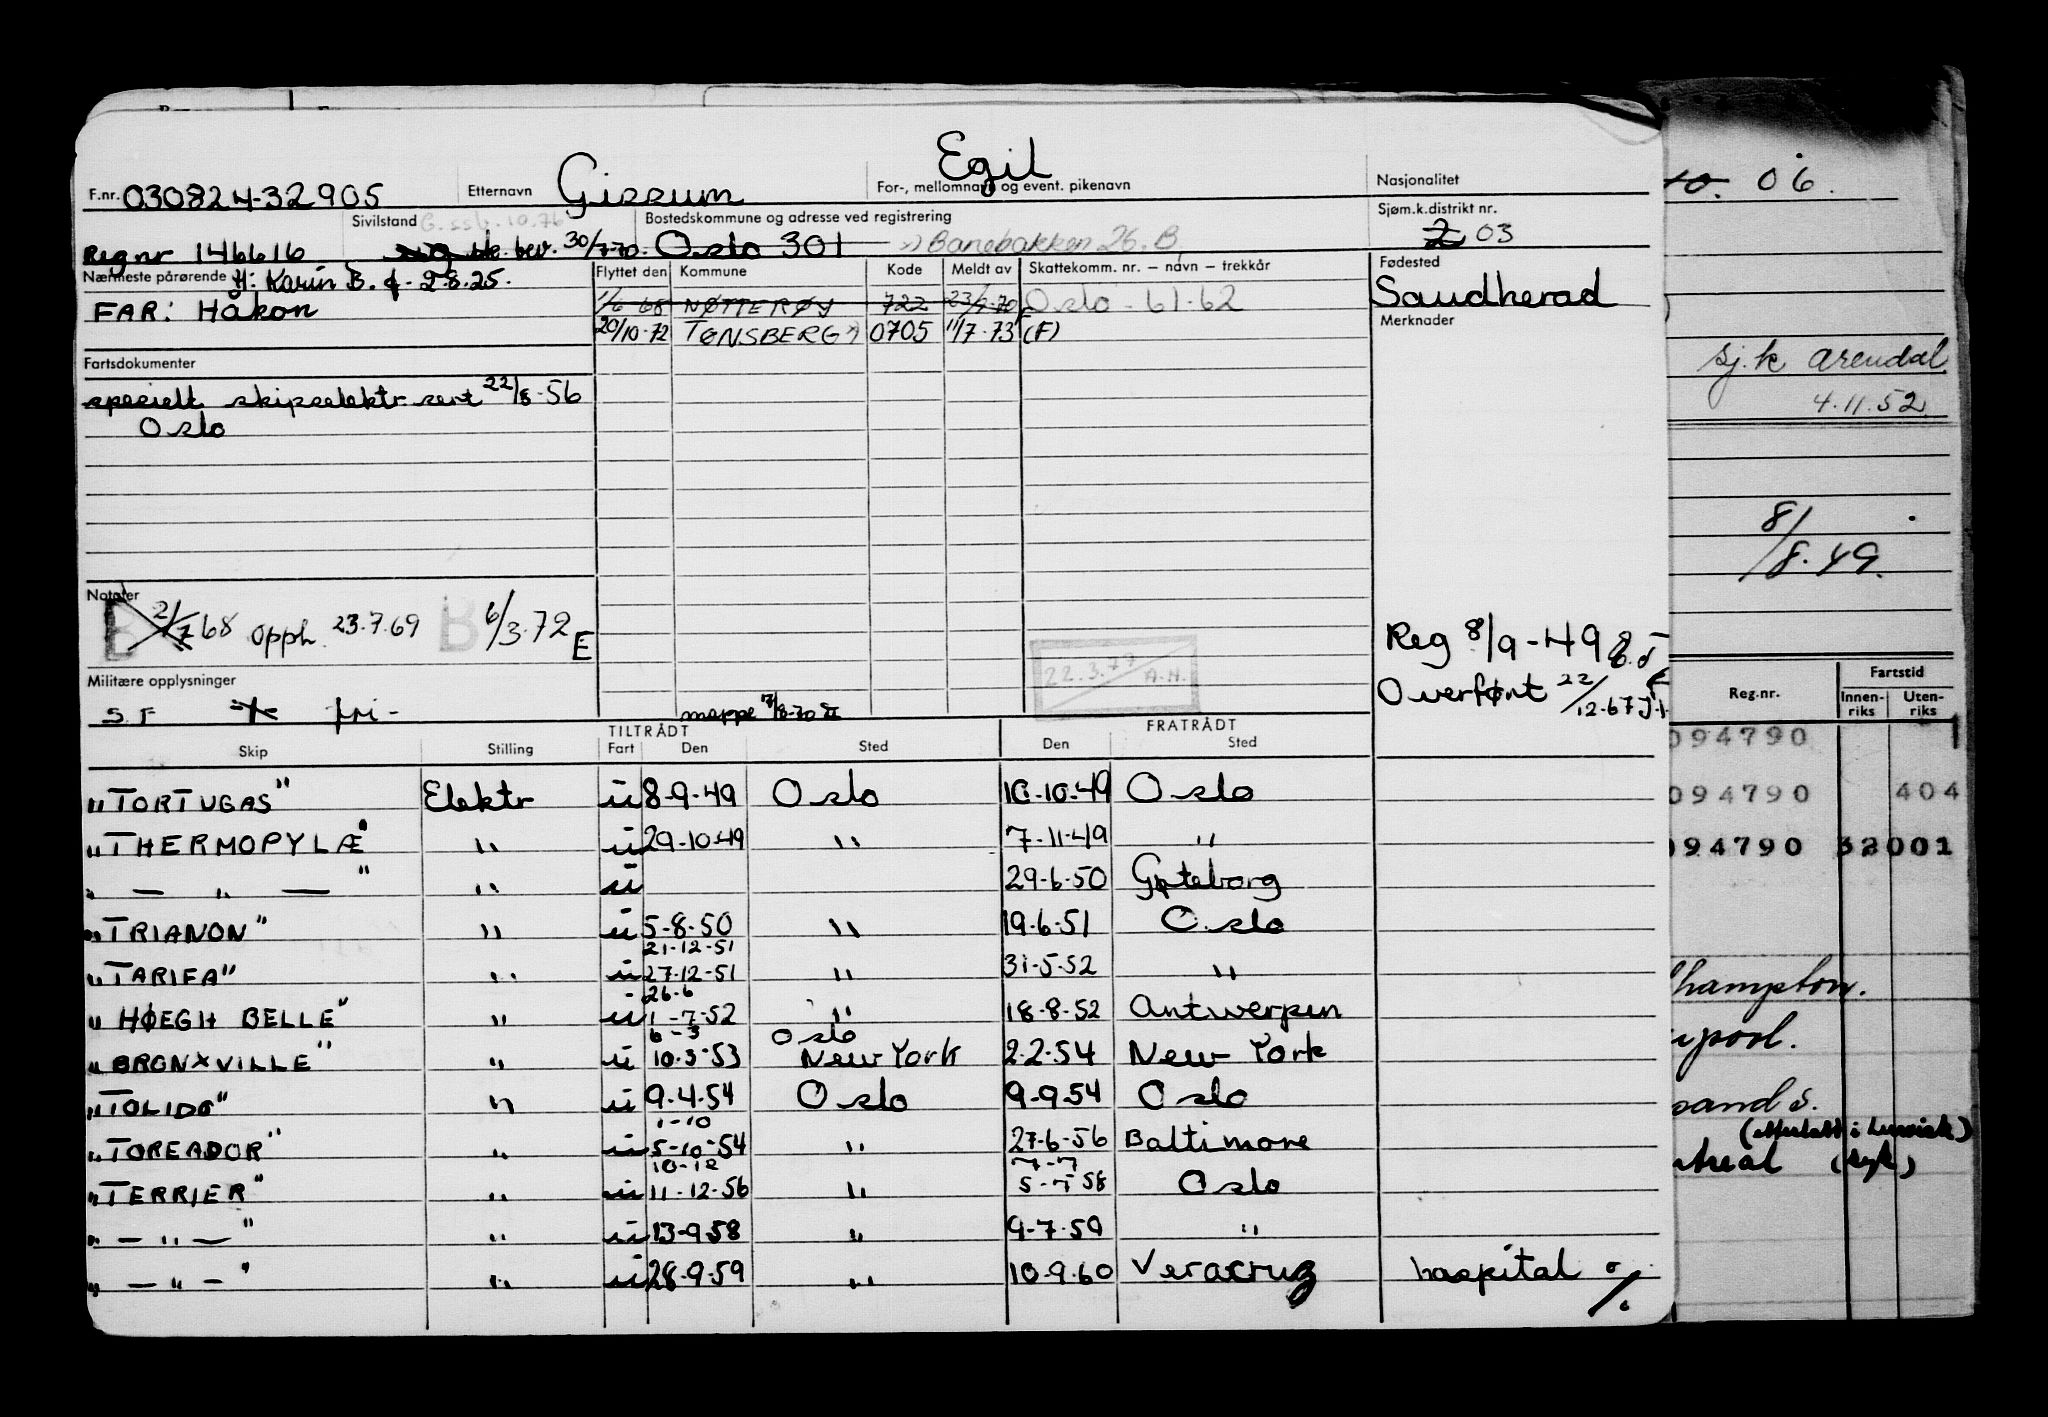 F.nr. 030824-32905 Etternavn Gissum For-, mellomnavn og event. pikenavn Egil Nasjonalitet
Reg nr 146616 Sivilstand G. ssb. 10.76 bev. 30/7-70. Bostedskommune og adresse ved registrering Oslo 301 Banebakken 26. B Sjøm.k.distrikt nr. 2 03
Nærmeste pårørende H: Karin B. f. 2-8.25. Flyttet den Kommune Kode Meldt av Skattekomm. nr. – navn – trekkår Fødested
FAR: Håkon 1/6 68 NØTTERØY 722 23/7-70 Oslo - 61-62 Saudherad
20/10-72 TØNSBERG 0705 11/7-73 (F) Merknader
Fartsdokumenter
spesielt skipselektr. sert 22/8-56
Oslo
Notater
B 2/7 68 opph. 23.7.69 B 6/3.72 E
Reg 8/9-49
Overført 22/12-67
22.3.77 A.H.
Militære opplysninger
S F fri -
mappe 7/8-70
TILTRÅDT FRATRÅDT
Skip Stilling Fart Den Sted Den Sted
"TORTUGAS" Elektr u 8-9-49 Oslo 10-10-49 Oslo
"THERMOPYLÆ" " u 29-10-49 " 7-11-49 "
" — " — " " u 29-6-50 Gøteborg
"TRIANON" " u 5-8-50 " 19-6-51 Oslo
21-12-51
"TARIFA" " u 27-12-51 " 31-5-52 "
26-6
"HØEGH BELLE" " u 1-7-52 " 18-8-52 Antwerpen
6-3 Oslo
"BRONXVILLE" " u 10-3-53 New York 2-2-54 New York
"TOLIDO" " u 9-4-54 Oslo 9-9-54 Oslo
1-10
"TOREADOR" " u 5-10-54 " 27-6-56 Baltimore
10-12 7-7
"TERRIER" " u 11-12-56 " 5-7-58 Oslo
" — " — " " u 13-9-58 " 9-7-59 "
" — " — " " u 28-9-59 " 10-9-60 Veracruz hospital %
06.
sj.k Arendal
4.11.52
8/8.49.
Reg.nr. Fartstid
Innen-riks Uten-riks
094790 1
094790 404
094790 32001
hampton.
pool.
sand S.